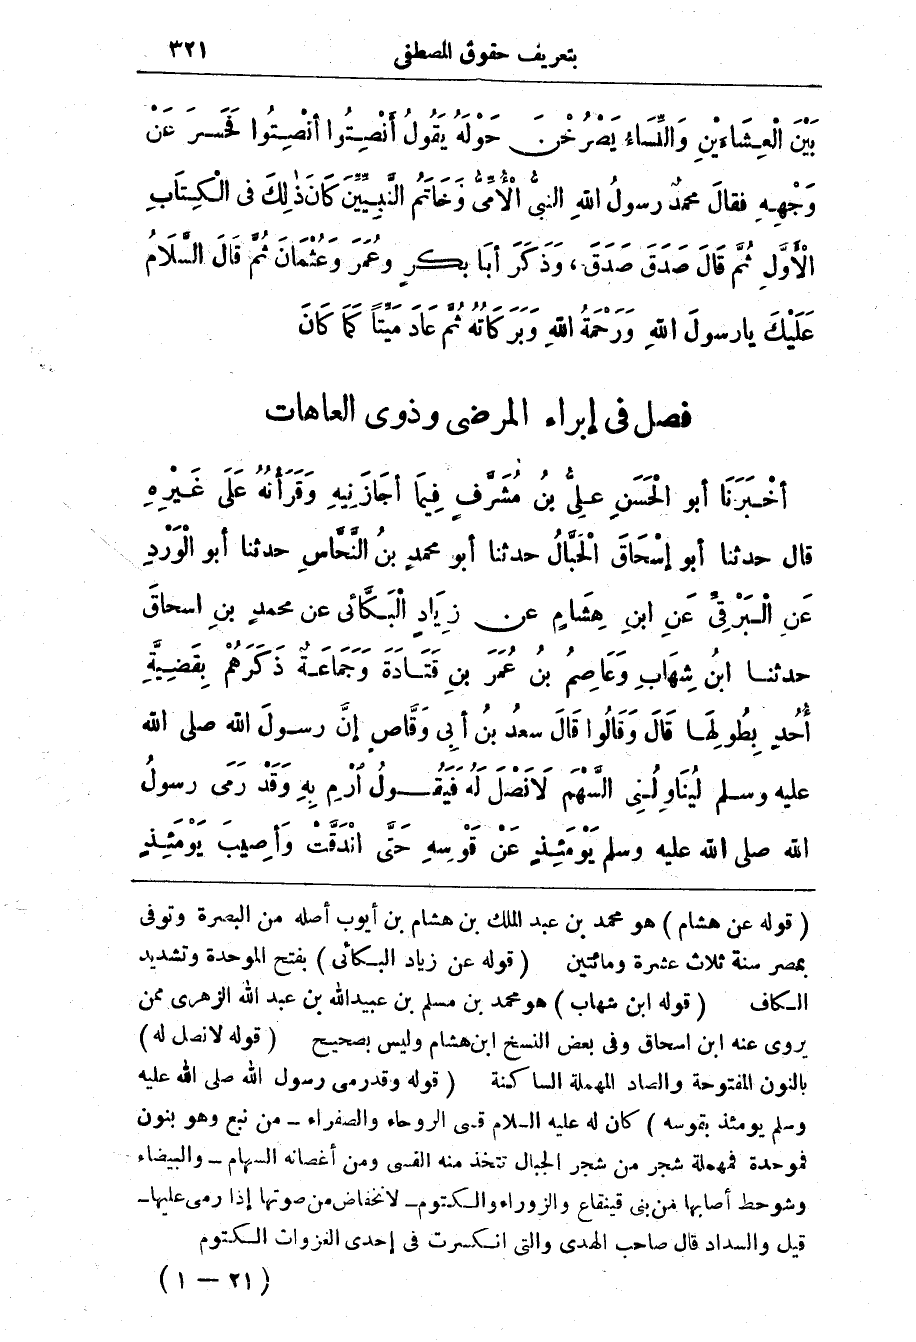 بتعريف حقوق المصطفى ٣٢١
بَيْنَ الْعِشَاءَيْنِ وَالنِّسَاءُ يَصْرُخْنَ حَوْلَهُ يَقُولُ أَنْصِتُوا أَنْصِتُوا فَحَسَرَ عَنْ
وَجْهِهِ فقالَ محمدٌ رسولُ اللهِ النبىُّ الْأُمِّىُّ وَخَاتَمُ النَّبِيِّينَ كَانَ ذٰلِكَ فى الْكِتَابِ
الْأَوَّلِ ثُمَّ قَالَ صَدَقَ صَدَقَ ، وَذَكَرَ أبَا بكرٍ وعُمَرَ وَعُثْمَانَ ثُمَّ قال السَّلَامُ
عَلَيْكَ يارسولَ اللهِ وَرَحْمَةُ اللهِ وَبَرَكَاتُهُ ثُمَّ عَادَ مَيِّتاً كَمَا كَانَ
فصل فى إبراء المرضى وذوى العاهات
أَخْبَرَنَا أبو الْحَسَنِ عَلِىُّ بنُ مُشَرَّفٍ فِيمَا أجَازَنِيهِ وَقَرَأْتُهُ عَلَى غَيْرِهِ
قال حدثنا أبو إسْحَاقَ الْحَبَّالُ حدثنا أبو محمدٍ بنُ النَّحَّاسِ حدثنا أبو الْوَرْدِ
عَنِ الْبَرْقِىِّ عَنِ ابنِ هِشَامٍ عن زِيَادٍ الْبَكَّائى عن محمدٍ بنِ اسحاقَ
حدثنا ابنُ شِهَابٍ وَعَاصِمُ بنُ عُمَرَ بنِ قَتَادَةَ وَجَمَاعَةٌ ذَكَرَهُمْ بِقَضِيَّةِ
أُحُدٍ بِطُولِهَا قَالَ وَقَالُوا قَالَ سعدُ بنُ أبِى وَقَّاصٍ إنَّ رسولَ الله صلى الله
عليه وسلم لَيُنَاوِلُنِى السَّهْمَ لَانَصْلَ لَهُ فَيَقُولُ ارْمِ بِهِ وَقَدْ رَمَى رسولُ
الله صلى الله عليه وسلم يَوْمَئِذٍ عَنْ قَوْسِهِ حَتَّى انْدَقَّتْ وَأُصِيبَ يَوْمَئِذٍ
( قوله عن هشام ) هو محمد بن عبد الملك بن هشام بن أيوب أصله من البصرة وتوفى
بمصر سنة ثلاث عشرة ومائتين ( قوله عن زياد البكائى ) بفتح الموحدة وتشديد
الكاف ( قوله ابن شهاب ) هو محمد بن مسلم بن عبيدالله بن عبد الله الزهرى ممن
يروى عنه ابن اسحاق وفى بعض النسخ ابن هشام وليس بصحيح ( قوله لانصل له )
بالنون المفتوحة والصاد المهملة الساكنة ( قوله وقدرمى رسول الله صلى الله عليه
وسلم يومئذ بقوسه ) كان له عليه السلام قسى الروحاء والصفراء ــ من نبع وهو بنون
فموحدة فمهملة شجر من شجر الجبال تتخذ منه القسى ومن أغصانه السهام ــ والبيضاء
وشوحط أصابها من بنى قينقاع والزوراء والكتوم ــ لانخفاض من صوتها إذا رمى عليها ــ
قيل والسداد قال صاحب الهدى والتى انكسرت فى إحدى الغزوات الكتوم
( ٢١ — ١ )